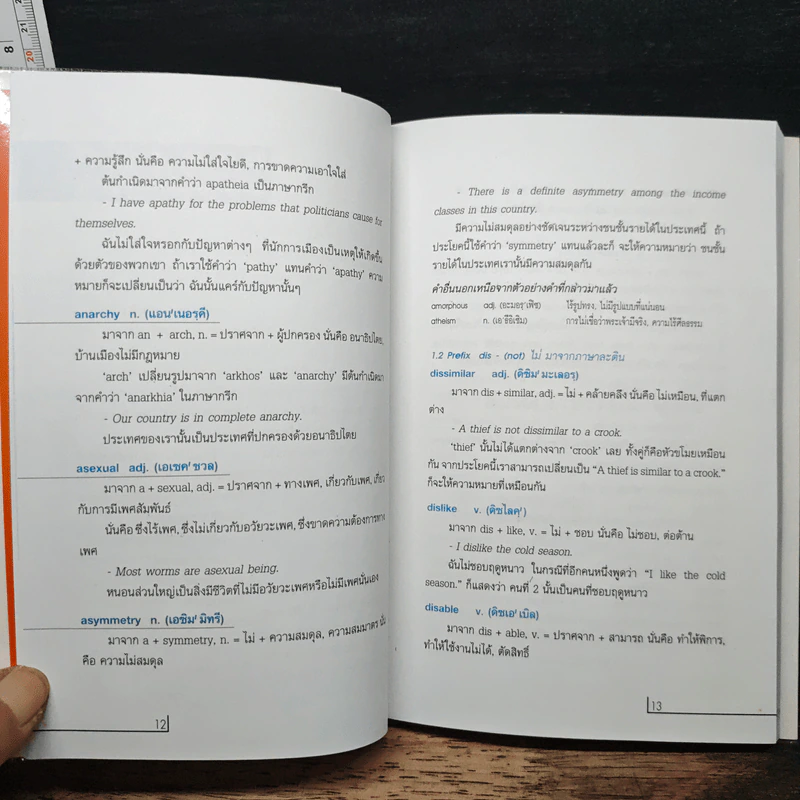 8
21
20
+ ความรู้สึก นั่นคือ ความไม่ใส่ใจไยดี, การขาดความเอาใจใส่
ต้นกำเนิดมาจากคำว่า apatheia เป็นภาษากรีก
- I have apathy for the problems that politicians cause for
themselves.
ฉันไม่ใส่ใจหรอกกับปัญหาต่างๆ ที่นักการเมืองเป็นเหตุให้เกิดขึ้น
ด้วยตัวของพวกเขา ถ้าเราใช้คำว่า 'pathy' แทนคำว่า 'apathy' ความ
หมายก็จะเปลี่ยนเป็นว่า ฉันนั้นแคร์กับปัญหานั้นๆ
anarchy n. (แอน'เนอรฺคี)
มาจาก an + arch, n. = ปราศจาก + ผู้ปกครอง นั่นคือ อนาธิปไตย,
บ้านเมืองไม่มีกฎหมาย
'arch' เปลี่ยนรูปมาจาก 'arkhos' และ 'anarchy' มีต้นกำเนิดมา
จากคำว่า 'anarkhia' ในภาษากรีก
- Our country is in complete anarchy.
ประเทศของเรานั้นเป็นประเทศที่ปกครองด้วยอนาธิปไตย
asexual adj. (เอเซค'ชวล)
มาจาก a + sexual, adj. = ปราศจาก + ทางเพศ, เกี่ยวกับเพศ, เกี่ยว
กับการมีเพศสัมพันธ์
นั่นคือ ซึ่งไร้เพศ, ซึ่งไม่เกี่ยวกับอวัยวะเพศ, ซึ่งขาดความต้องการทาง
เพศ
- Most worms are asexual being.
หนอนส่วนใหญ่เป็นสิ่งมีชีวิตที่ไม่มีอวัยวะเพศหรือไม่มีเพศนั่นเอง
asymmetry n. (เอซิม'มิทรี)
มาจาก a + symmetry, n. = ไม่ + ความสมดุล, ความสมมาตร นั่น
คือ ความไม่สมดุล
12
- There is a definite asymmetry among the income
classes in this country.
มีความไม่สมดุลอย่างชัดเจนระหว่างชนชั้นรายได้ในประเทศนี้ ถ้า
ประโยคนี้ใช้คำว่า 'symmetry' แทนแล้วละก็ จะให้ความหมายว่า ชนชั้น
รายได้ในประเทศเรานั้นมีความสมดุลกัน
คำอื่นนอกเหนือจากตัวอย่างคำที่กล่าวมาแล้ว
amorphous adj. (อะมอรฺ'เฟิซ) ไร้รูปทรง, ไม่มีรูปแบบที่แน่นอน
atheism n. (เอ'ธีอิเซิม) การไม่เชื่อว่าพระเจ้ามีจริง, ความไร้ศีลธรรม
1.2 Prefix dis - (not) ไม่ มาจากภาษาละติน
dissimilar adj. (ดิซิม'มะเลอรฺ)
มาจาก dis + similar, adj. = ไม่ + คล้ายคลึง นั่นคือ ไม่เหมือน, ที่แตก
ต่าง
- A thief is not dissimilar to a crook.
'thief' นั้นไม่ได้แตกต่างจาก 'crook' เลย ทั้งคู่ก็คือหัวขโมยเหมือน
กัน จากประโยคนี้เราสามารถเปลี่ยนเป็น "A thief is similar to a crook."
ก็จะให้ความหมายที่เหมือนกัน
dislike v. (ดิซไลคฺ')
มาจาก dis + like, v. = ไม่ + ชอบ นั่นคือ ไม่ชอบ, ต่อต้าน
- I dislike the cold season.
ฉันไม่ชอบฤดูหนาว ในกรณีที่อีกคนหนึ่งพูดว่า "I like the cold
season." ก็แสดงว่า คนที่ 2 นั้นเป็นคนที่ชอบฤดูหนาว
disable v. (ดิซเอ'เบิล)
มาจาก dis + able, v. = ปราศจาก + สามารถ นั่นคือ ทำให้พิการ,
ทำให้ใช้งานไม่ได้, ตัดสิทธิ์
13